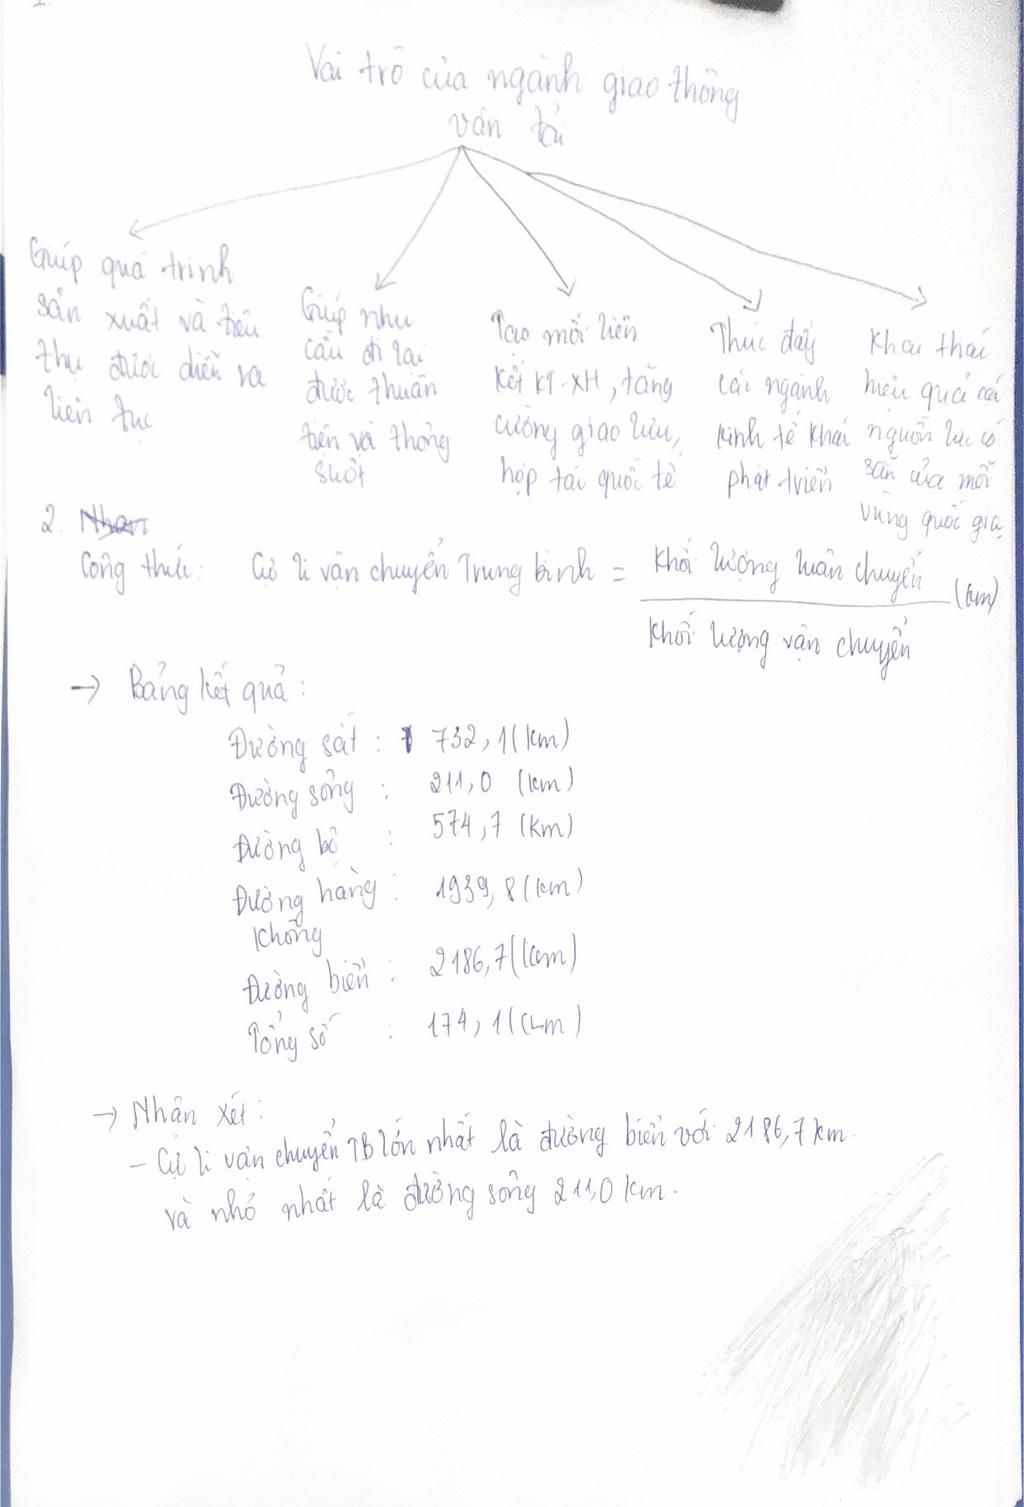 Vai trò của ngành giao thông
vận tải
Giúp quá trình
sản xuất và tiêu
thụ được diễn ra
liên tục
Giúp nhu
cầu đi lại
được thuận
tiện và thông
suốt
Tạo mối liên
kết KT-XH, tăng
cường giao lưu,
hợp tác quốc tế
Thúc đẩy
các ngành
kinh tế khác
phát triển
Khai thác
hiệu quả các
nguồn lực có
sẵn của mỗi
vùng quốc gia
2.
Công thức: Cự li vận chuyển Trung bình = Khối lượng luân chuyển (km)
Khối lượng vận chuyển
→ Bảng kết quả:
Đường sắt : 732,1 (km)
Đường sông : 211,0 (km)
Đường bộ : 574,7 (km)
Đường hàng : 1939,8 (km)
không
Đường biển : 2186,7 (km)
Tổng số : 174,1 (km)
→ Nhận xét:
- Cự li vận chuyển TB lớn nhất là đường biển với 2186,7 km.
và nhỏ nhất là đường sông 211,0 km.